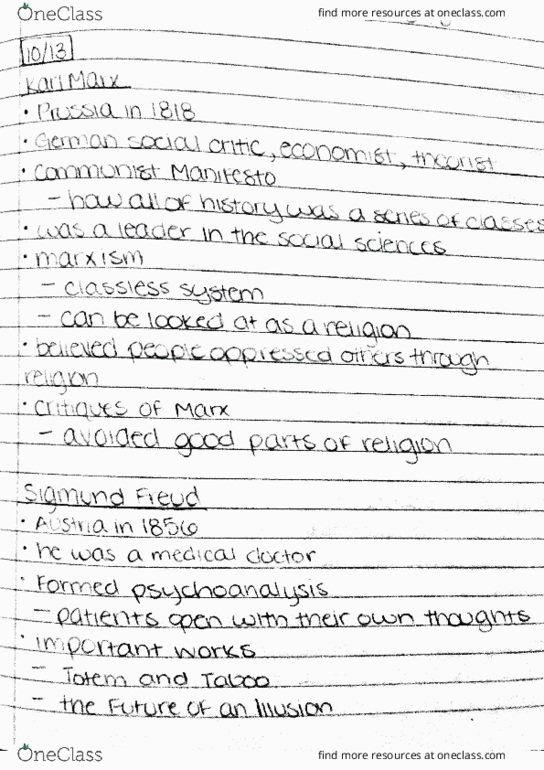 OneClass find more resources at oneclass.com
10/13
Karl Marx
• Prussia in 1818
• German social critic, economist, theorist
• Communist Manifesto
– how all of history was a series of classes
• was a leader in the social sciences
• marxism
– classless system
– can be looked at as a religion
• believed people oppressed others through
religion
• critiques of Marx
– avoided good parts of religion
Sigmund Freud
• Austria in 1856
• he was a medical doctor
• Formed psychoanalysis
– patients open with their own thoughts
• important works
– Totem and Taboo
– the Future of an Illusion
OneClass find more resources at oneclass.com